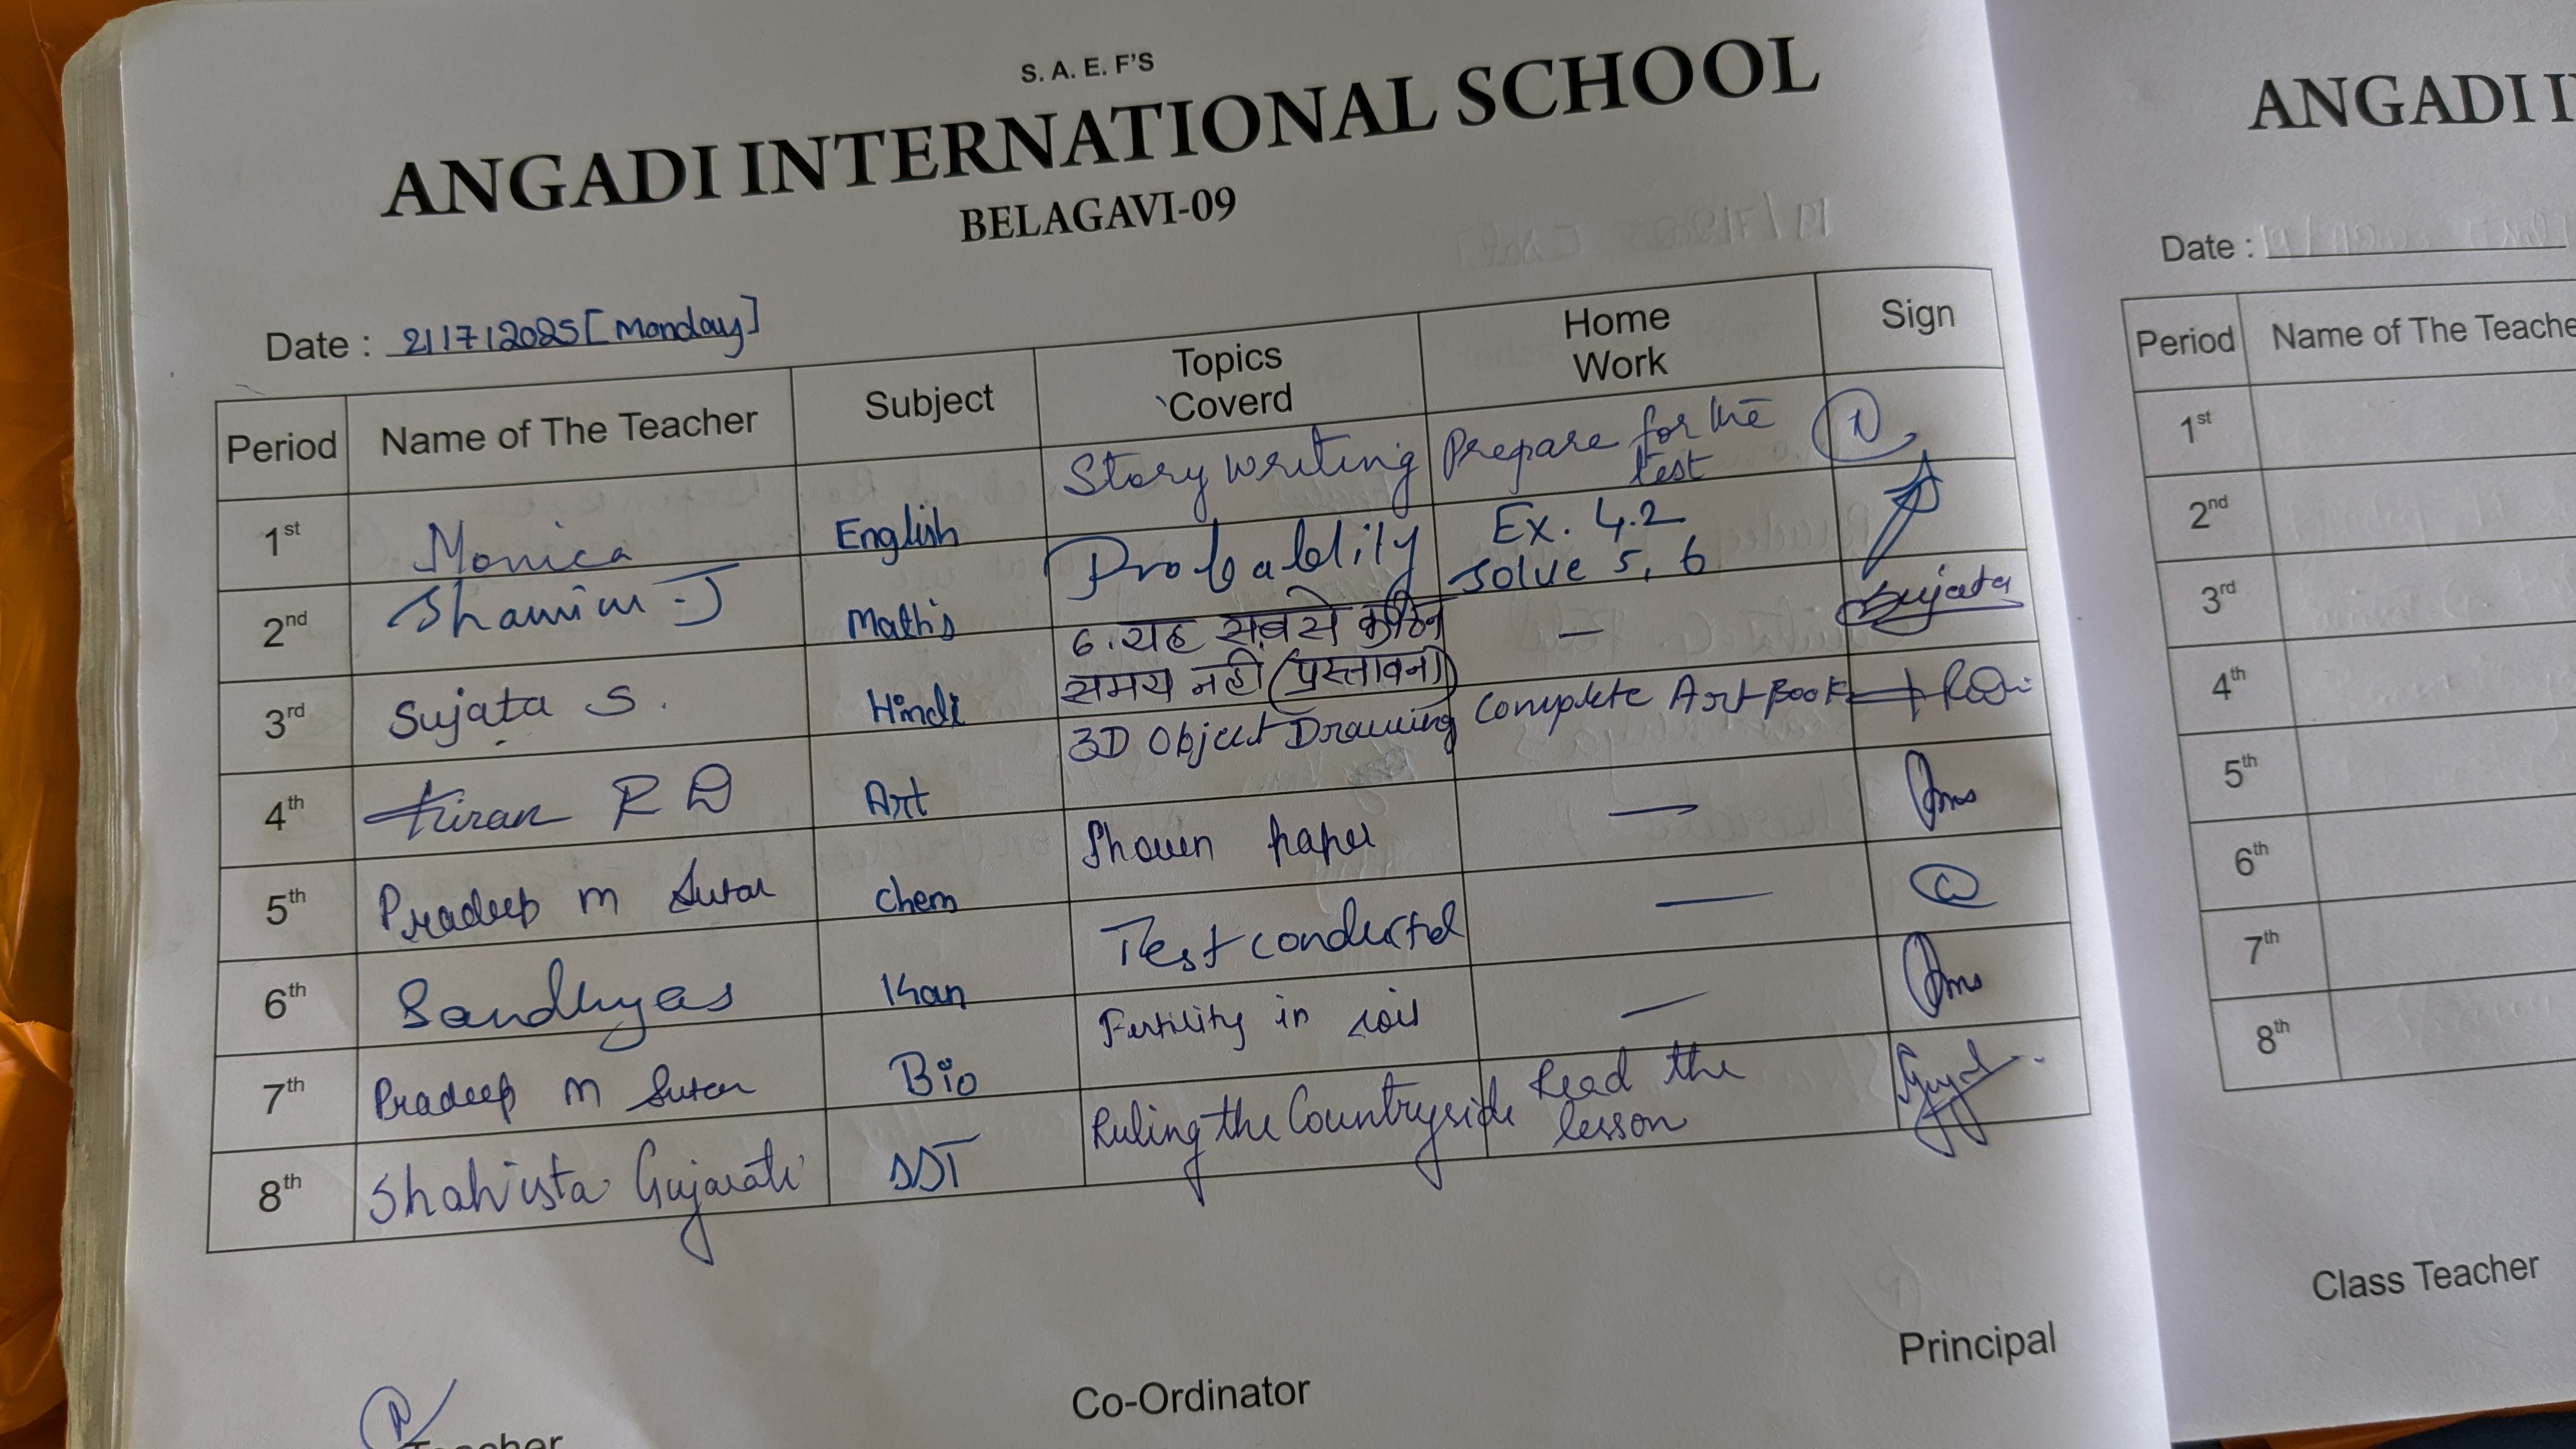 S. A. E. F'S
ANGADI INTERNATIONAL SCHOOL
BELAGAVI-09
Date : 21/7/2025 [Monday]
Period Name of The Teacher Subject Topics Coverd Home Work Sign
1st Monica English Story writing Prepare for the test
2nd Shamim - J Maths Probability Ex. 4.2 Solve 5, 6
3rd Sujata S. Hindi 6. यह सबसे कठिन समय नही (प्रस्तावना) — Sujata
4th Kiran R D Art 3D Object Drawing Complete Art Book
5th Pradeep m Sutar Chem Shown paper —
6th Sandhyas Kan Test conducted —
7th Pradeep m Sutar Bio Fertility in soil —
8th Shahista Gujarati SST Ruling the Countryside Read the lesson
Co-Ordinator
Principal
ANGADI
Date :
Period Name of The Teache
1st
2nd
3rd
4th
5th
6th
7th
8th
Class Teacher